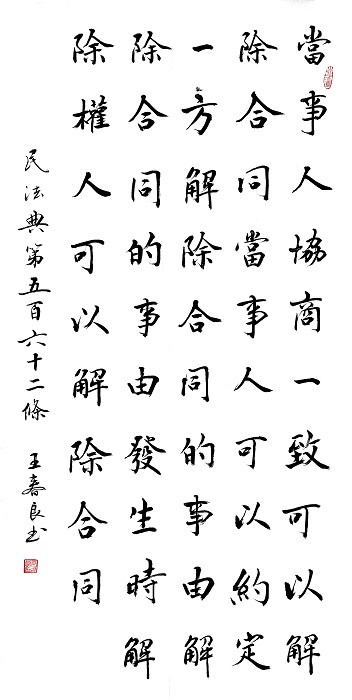 當事人協商一致可以解
除合同當事人可以約定
一方解除合同的事由解
除合同的事由發生時解
除權人可以解除合同
民法典第五百六十二條 王春良书